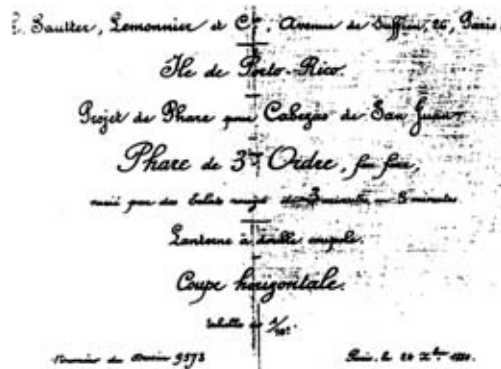 Sautter, Lemonnier et Cie, Avenue de Suffren, 26, Paris.
Ile de Porto-Rico.
Projet de Phare pour Cabezas de San Juan
Phare de 3me Ordre, feu fixe,
varié par des éclats rouges de 3 minutes en 3 minutes
Lanterne à double coupole.
Coupe horizontale.
Echelle de 1/10e
Numéro du Dessin 9572
Paris, le 24 Xbre 1880.